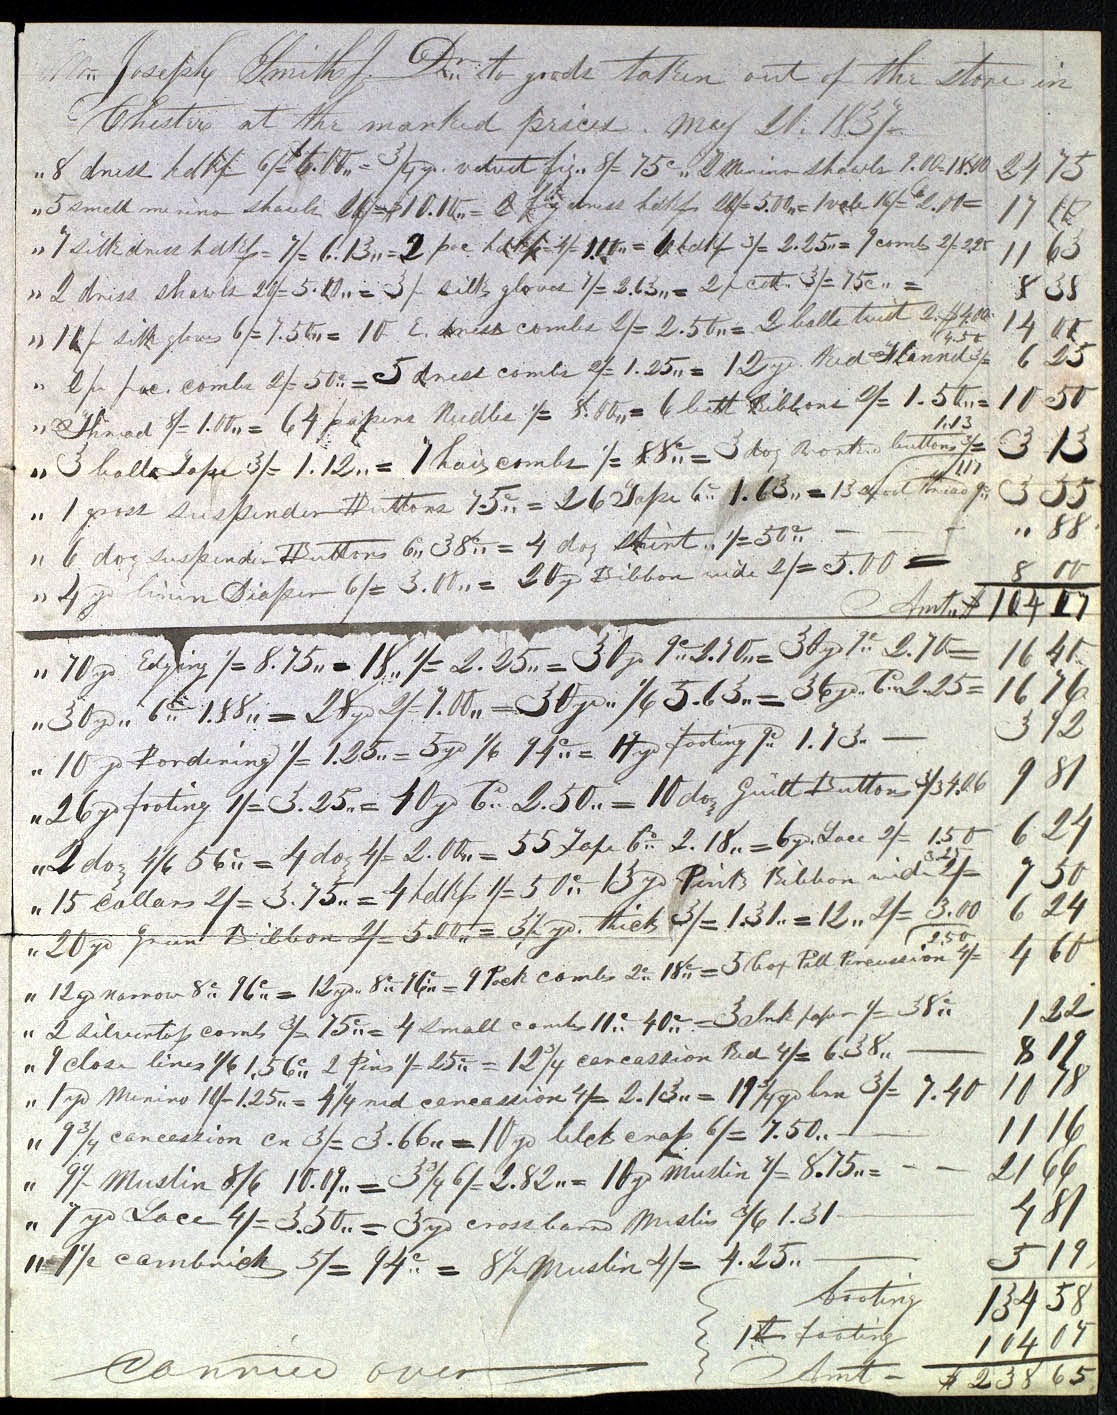 Joseph Smith Jr. Dr.. to goods taken out of the store in
Chester at the marked prices. May 21. 1837
„ 8 dress hdkfs 6/= $6.00„= 3/4 yd. velvet fig„ 8/- 75c„ 2 Merino shawls 9.00=18.00 24 75
„ 5 small merino shawls = $10.10„= 2 dress hdkfs 20/= 5.00„= 1 16/= 2.00= 17
„ 7 silk dress hdkfs= 7/= 6.13„= 2 poc hdkfs 4/= 1.00„= 6 hdkfs 3/= 2.25„= 9 combs 2/= 2.25 11 63
„ 2 dress shawls 20/= 5.00„= 3 pr silk gloves 7/= 2.63„= 2 pr cott. 3/= 75c„ = 8 38
„ 10 pr silk gloves 6/= 7.50„= 10 E. dress combs 2/= 2.50„= 2 balls twist $4.00 14 00
„ 2 pr poc. combs 2/= 50c„= 5 dress combs 2/= 1.25„= 12 yd. Red Flannel 3/= 4.50 6 25
„ Thread 8/= 1.00„= 64 papers Needles 1/= 8.00„= 6 bolt Ribbons 2/= 1.50„= 10 50
„ 3 balls Tape 3/= 1.12„= 7 hair combs 1/= 88c„= 3 doz buttons 3/= 1.13 3 13
„ 1 gross suspender Buttons 75c„= 26 Tape 6c„ 1.63„= 13 Thread 9c„ 117 3 55
„ 6 doz suspender Buttons 6c„ 38c„= 4 doz Shirt „ 1/= 50c„ - - - „ 88
„ 4 yd linen Diaper 6/= 3.00„= 20 yd Ribbon wide 2/= 5.00 = 8 00
Amt„ $ 104 07
„ 70 yd Edging 1/= 8.75„= 18„ 1/= 2.25„= 30 yd 9c„ 2.70„= 30 yd 9c 2.70= 16 40
„ 30 yd„ 6c„ 1.88„= 28 yd 2/= 7.00„= 30 yd„ 1/6 5.63„= 36 yd„ 6c„ 2.25= 16 76
„ 10 yd Bordering 1/= 1.25„= 5 yd 1/6 94c„= 19 yd footing 9c 1.73„ — 3 92
„ 26 yd footing 1/= 3.25„= 40 yd 6c„ 2.50„= 10 doz Guilt Buttons 3/3 4.06 9 81
„ 2 doz 4/6 56c„= 4 doz 4/= 2.00„= 35 Tape 6c„ 2.18„= 6 yd. Lace 2/= 1.50 6 24
„ 15 Collars 2/= 3.75„= 4 hdkfs 1/= 50c„ 13 yd Pink Ribbon wide 2/= 3.25 7 50
„ 20 yd Green Ribbon 2/= 5.00„= 3 1/2 yd. thick 3/= 1.31„= 12„ 2/= 3.00 6 24
„ 12 yd narrow 8c„ 96c„= 12 yd„ 8c„ 96c„= 9 Pock combs 2c„ 18c„= 5 box Pill Percussion 4/= 2.50 4 60
„ 2 silvertop combs 3/= 75c„= 4 small combs 10c„ 40c„= 3 Ink paper 1/= 38c„ 1 22
„ 9 close lines 1/6 1.56c„ 2 Pins 1/= 25c„= 12 3/4 concassion Red 4/= 6.38„ — 8 19
„ 1 yd Merino 10/= 1.25„= 4 1/4 red concassion 4/= 2.13„= 19 3/4 yd brn 3/= 7.40 10 78
„ 9 3/4 concession cn 3/= 3.66„= 10 yd blck crap 6/= 7.50„ — 11 16
„ 9 1/2 Muslin 8/6 10.09„= 3 3/4 6/= 2.82„= 10 yd Muslin 7/= 8.75„= - - — 21 66
„ 7 yd Lace 4/= 3.50„= 3 yd crossbard Muslin 3/6 1.31 — 4 81
„ 1 1/2 cambrick 5/= 94c„= 8 1/2 Muslin 4/= 4.25„ — 5 19
footing 134 58
1st footing 104 07
Carried over — Amt - $ 238 65